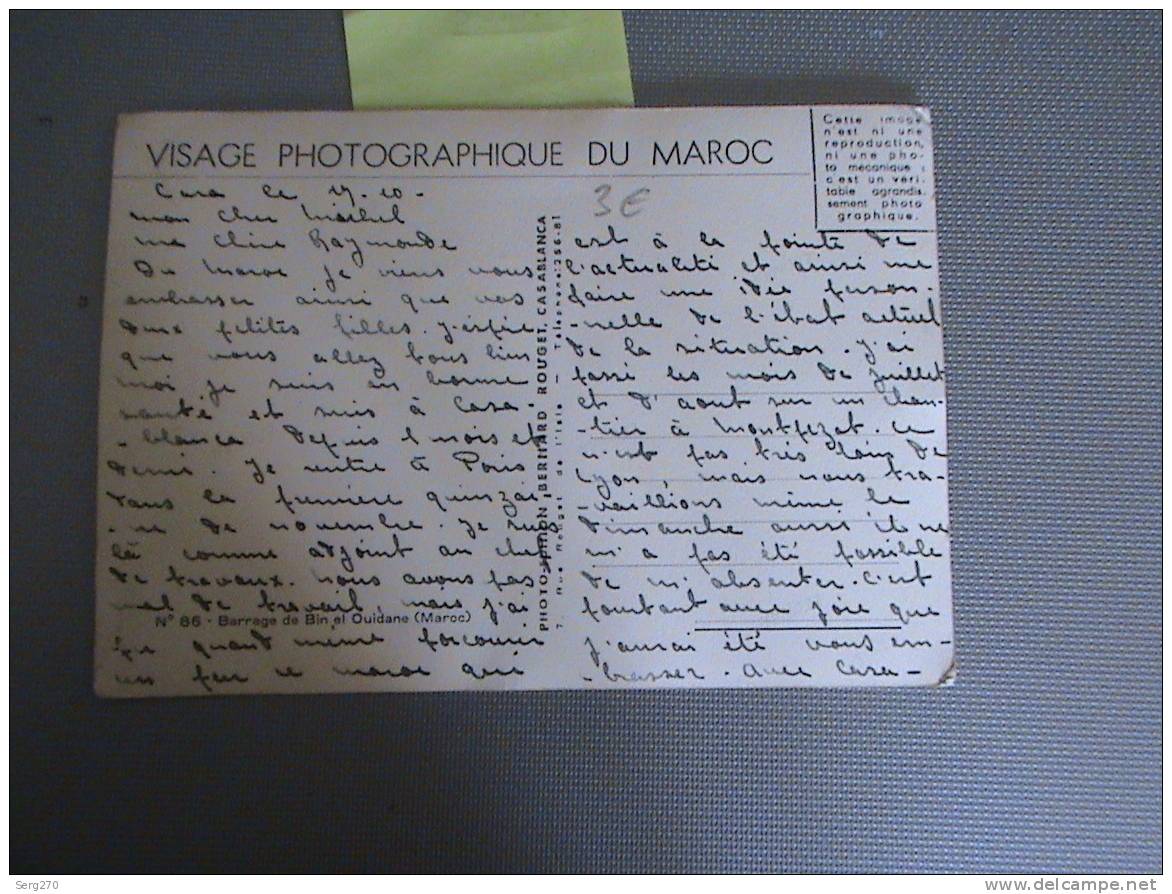 VISAGE PHOTOGRAPHIQUE DU MAROC
Cette image
n'est ni une
reproduction,
ni une pho-
to mécanique ;
c'est un véri-
table agrandis-
sement photo
graphique.
3€
Casa ce
mon cher
ma chère Raymonde
Du Maroc je viens vous
embrasser ainsi que vos
deux petites filles. J'espère
que vous allez tous bien
moi je suis en bonne
santé et suis à Casa-
-blanca depuis 1 mois et
demi. Je rentre à Paris
dans la première quinzai-
-ne de novembre. Je suis
là comme adjoint au chef
de travaux. nous avons pas
mal de travail, mais j'ai
pu quand même parcourir
un peu ce maroc qui
N° 86 - Barrage de Bin el Ouidane (Maroc)
PHOTO-EDITION BERNARD ROUGET, CASABLANCA
7, Rue Rouget de l'Isle — Téléphone: 256-81
est à la pointe de
l'actualité et ainsi me
faire une idée person-
-nelle de l'état actuel
de la situation. J'ai
passé les mois de juillet
et d'aout sur un chan-
-tier à Montpezat. ce
n'est pas très loin de
Lyon, mais nous tra-
-vaillions même le
dimanche aussi il ne
m'a pas été possible
de m'absenter. C'est
pourtant avec joie que
j'aurais été vous em-
-brasser. avec Casa-
Serg270
delcampe.net